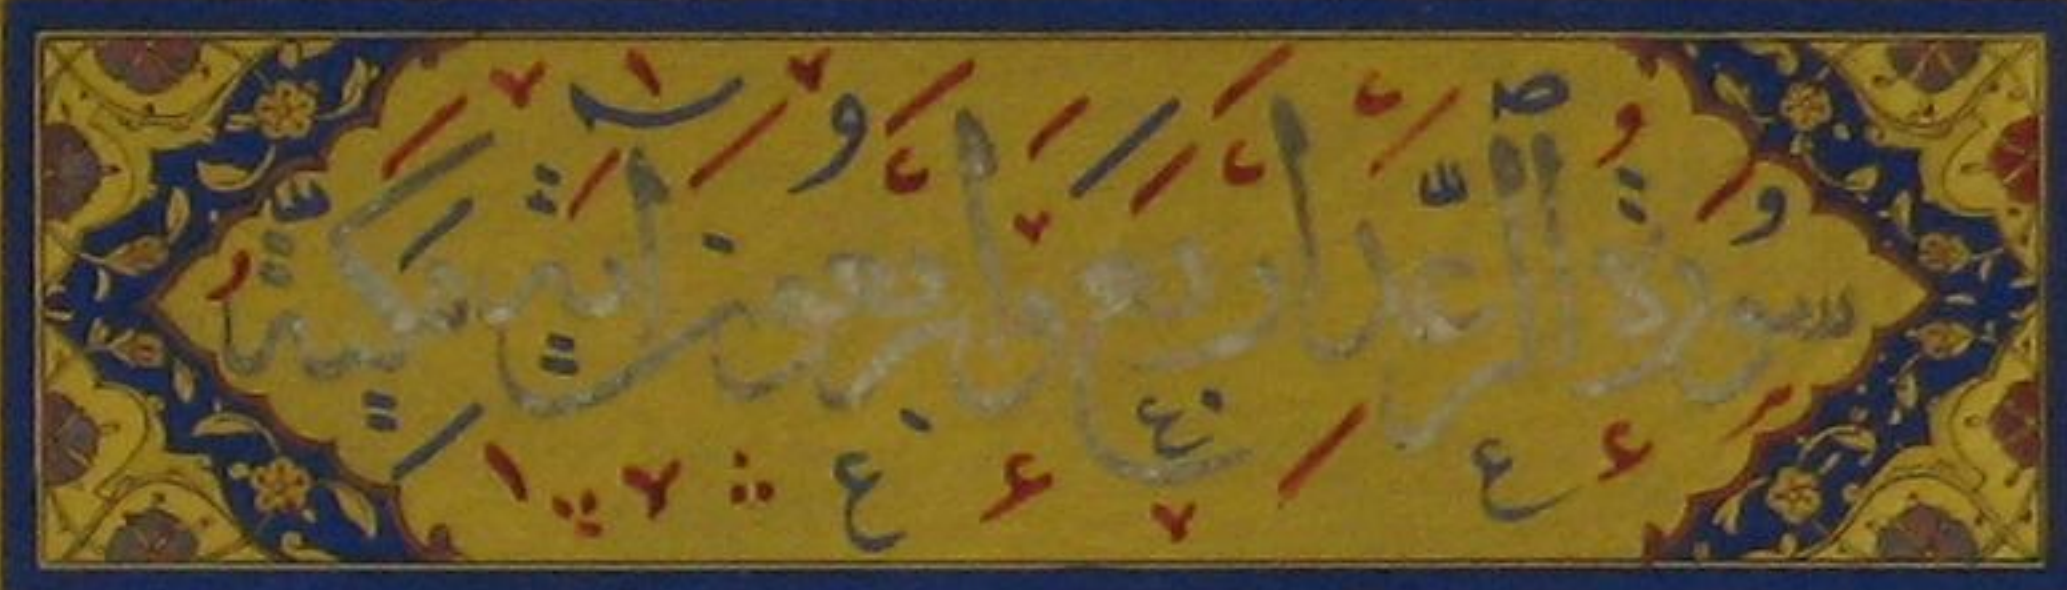 سورة الرعد اربع واربعون اية مكية